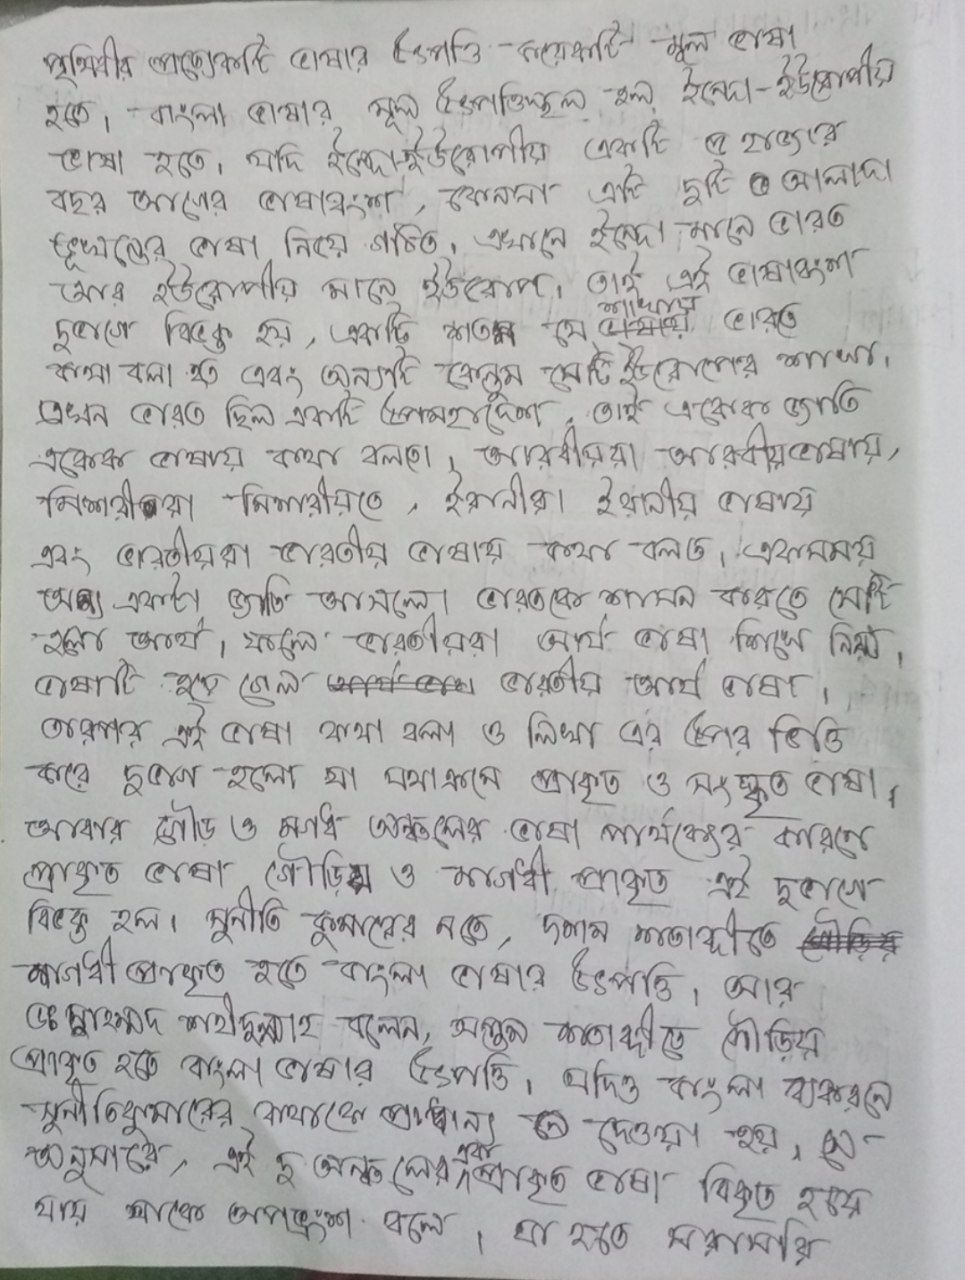 পৃথিবীর প্রত্যেকটি ভাষার উৎপত্তি কয়েকটি মূল ভাষা
হতে। বাংলা ভাষার মূল উৎপত্তিস্থল হল ইন্দো-ইউরোপীয়
ভাষা হতে। যদি ইন্দো-ইউরোপীয় একটি হাজার
বছর আগের ভাষাবংশ, কেননা এটি দুটি আলাদা
ভূখন্ডের ভাষা নিয়ে গঠিত। এখানে ইন্দো মানে ভারত
আর ইউরোপীয় মানে ইউরোপ। তাই এই ভাষাবংশ
দুভাগে বিভক্ত হয়, একটি শতম যে শাখায় ভারতে
কথা বলা হত এবং অন্যটি কেন্তুম সেটি ইউরোপের শাখা।
তখন ভারত ছিল একটি উপমহাদেশ। তাই একেক জাতি
একেক ভাষায় কথা বলতো। আরবীয়রা আরবীয়ভাষায়,
মিশরীয়রা মিশরীয়তে, ইরানীরা ইরানীয় ভাষায়
এবং ভারতীয়রা ভারতীয় ভাষায় কথা বলত। একসময়
অন্য একটা জাতি আসলো ভারতকে শাসন করতে সেটি
হলো আর্য। ফলে ভারতীয়রা আর্য ভাষা শিখে নিয়।
ভাষাটি হতে গেল ভারতীয় আর্য ভাষা।
তারপর এই ভাষা কথা বলা ও লিখা এর উপর ভিত্তি
করে দুভাগ হলো যা যথাক্রমে প্রাকৃত ও সংস্কৃত ভাষা।
আবার গৌড় ও মগধ অঞ্চলের ভাষা পার্থক্যের কারণে
প্রাকৃত ভাষা গৌড়িয় ও মাগধী প্রাকৃত এই দুভাগে
বিভক্ত হল। সুনীতি কুমারের মতে, দশম শতাব্দীতে
মাগধী প্রাকৃত হতে বাংলা ভাষার উৎপত্তি। আর
ডঃ মুহাম্মদ শহীদুল্লাহ বলেন, সপ্তম শতাব্দীতে গৌড়িয়
প্রাকৃত হতে বাংলা ভাষার উৎপত্তি। যদিও বাংলা ব্যাকরনে
সুনীতিকুমারের কথাকে প্রাধান্য দেওয়া হয়। সে
অনুসারে, এই দু অঞ্চলের এক প্রাকৃত ভাষা বিকৃত হয়ে
যায় যাকে অপভ্রংশ বলে। যা হতে সরাসরি